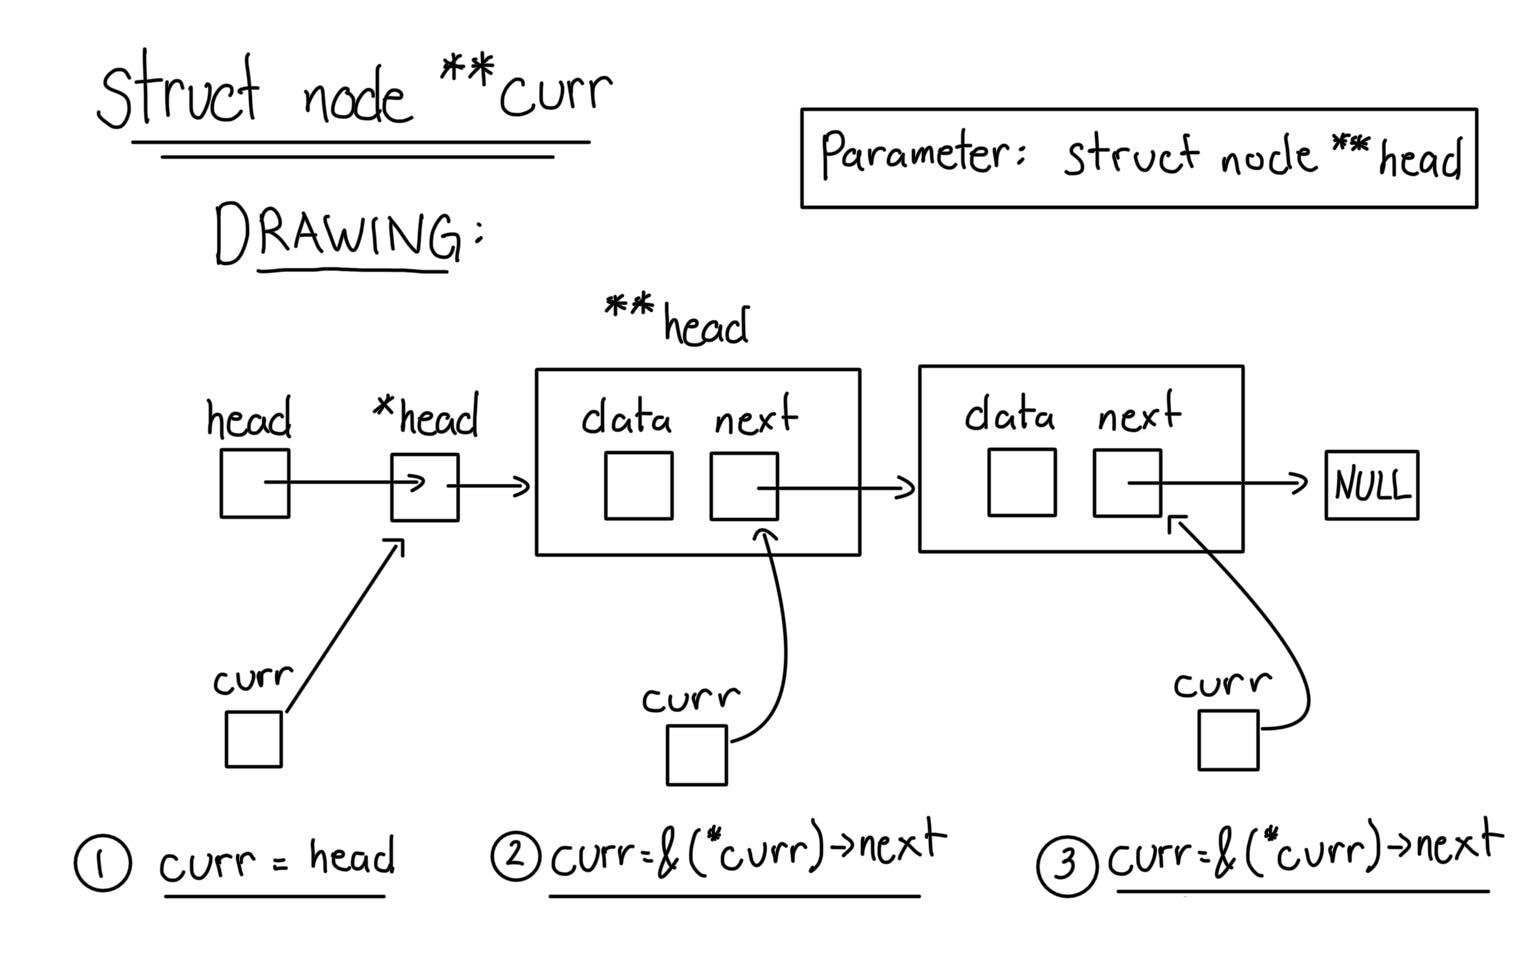 Struct node **curr
Parameter: struct node **head
DRAWING:
**head
head *head data next data next
NULL
curr curr curr
① curr = head ② curr=&(*curr)->next ③ curr=&(*curr)->next